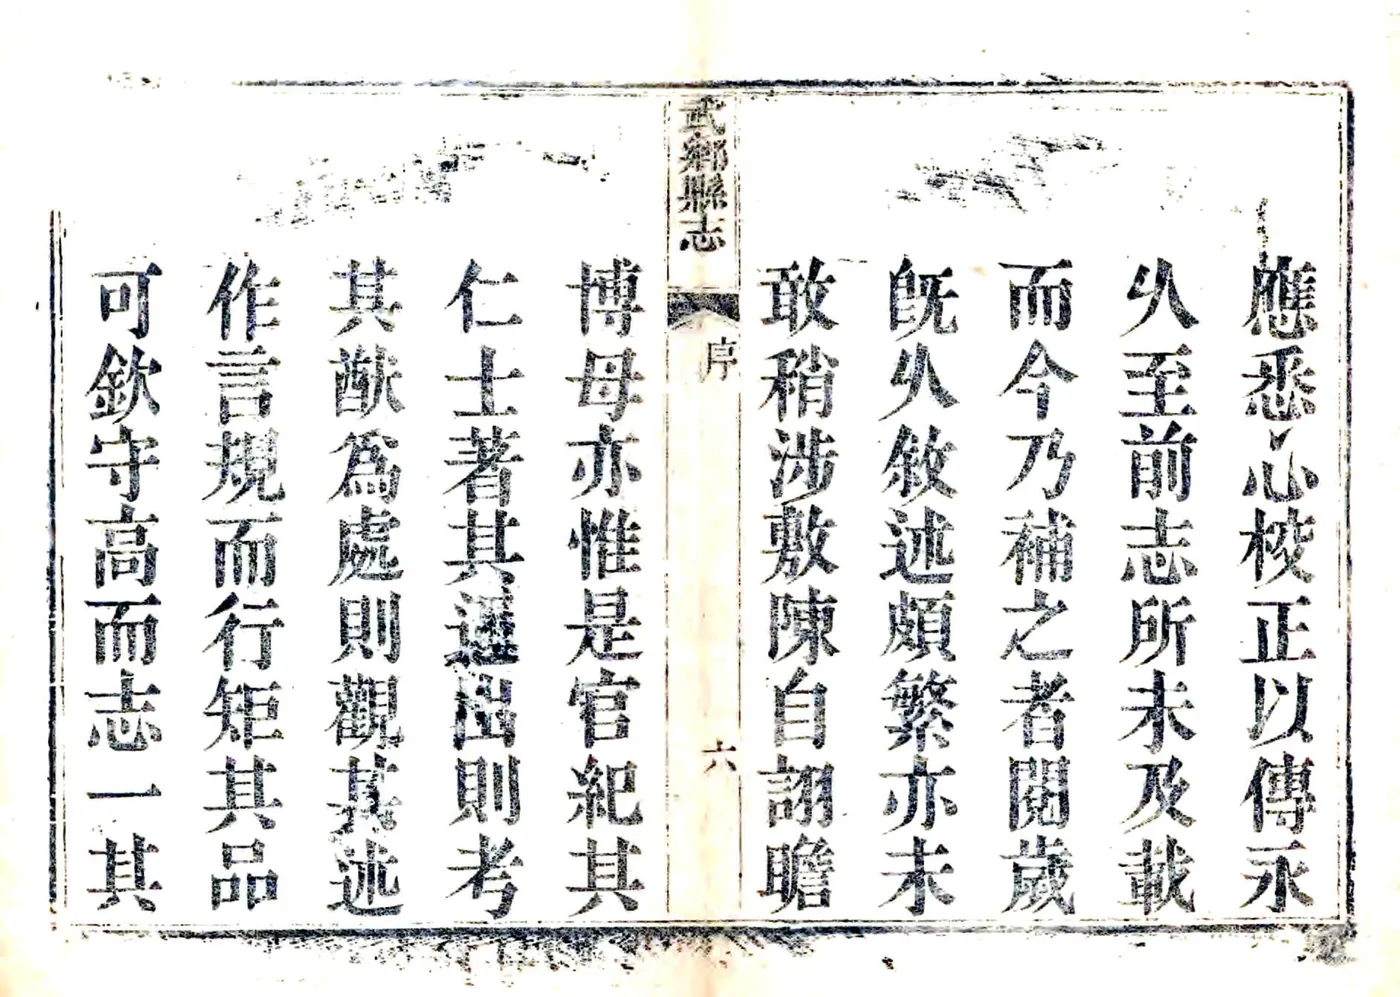 應悉心校正以傳永
久至前志所未及載
而今乃補之者閱歲
既久敘述頗繁亦未
敢稍涉敷陳自詡瞻
武鄉縣志
序
六
博母亦惟是官紀其
仁士著其出則考
其猷為處則觀其述
作言規而行矩其品
可欽守高而志一其